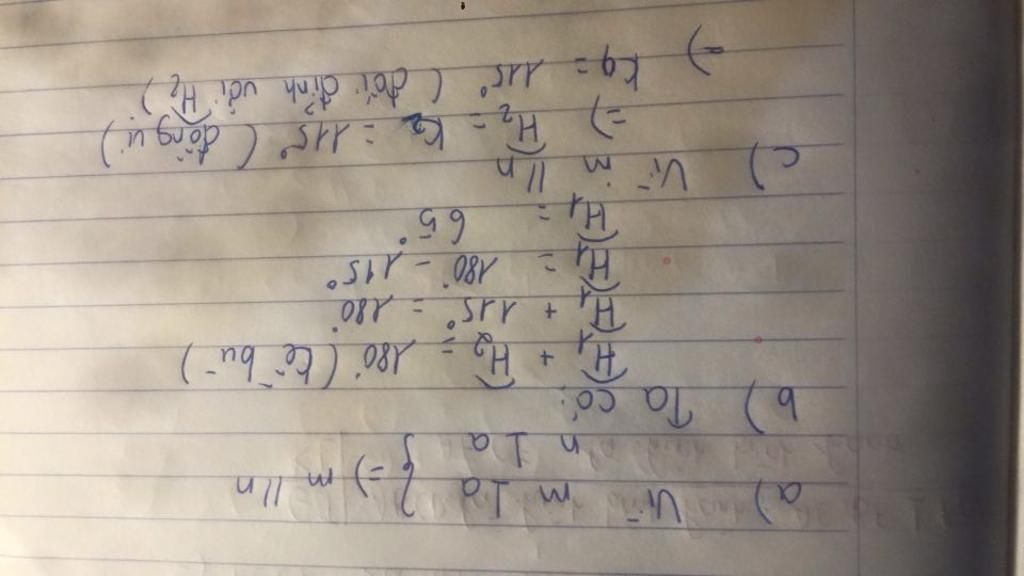 a) Vì m ⊥ a
n ⊥ a } => m // n
b) Ta có:
Ĥ1 + Ĥ2 = 180° (kề bù)
Ĥ1 + 115° = 180°
Ĥ1 = 180° - 115°
Ĥ1 = 65°
c) Vì m // n
=> Ĥ2 = K2 = 115° (đồng vị)
=> K4 = 115° (đối đỉnh với Ĥ2)